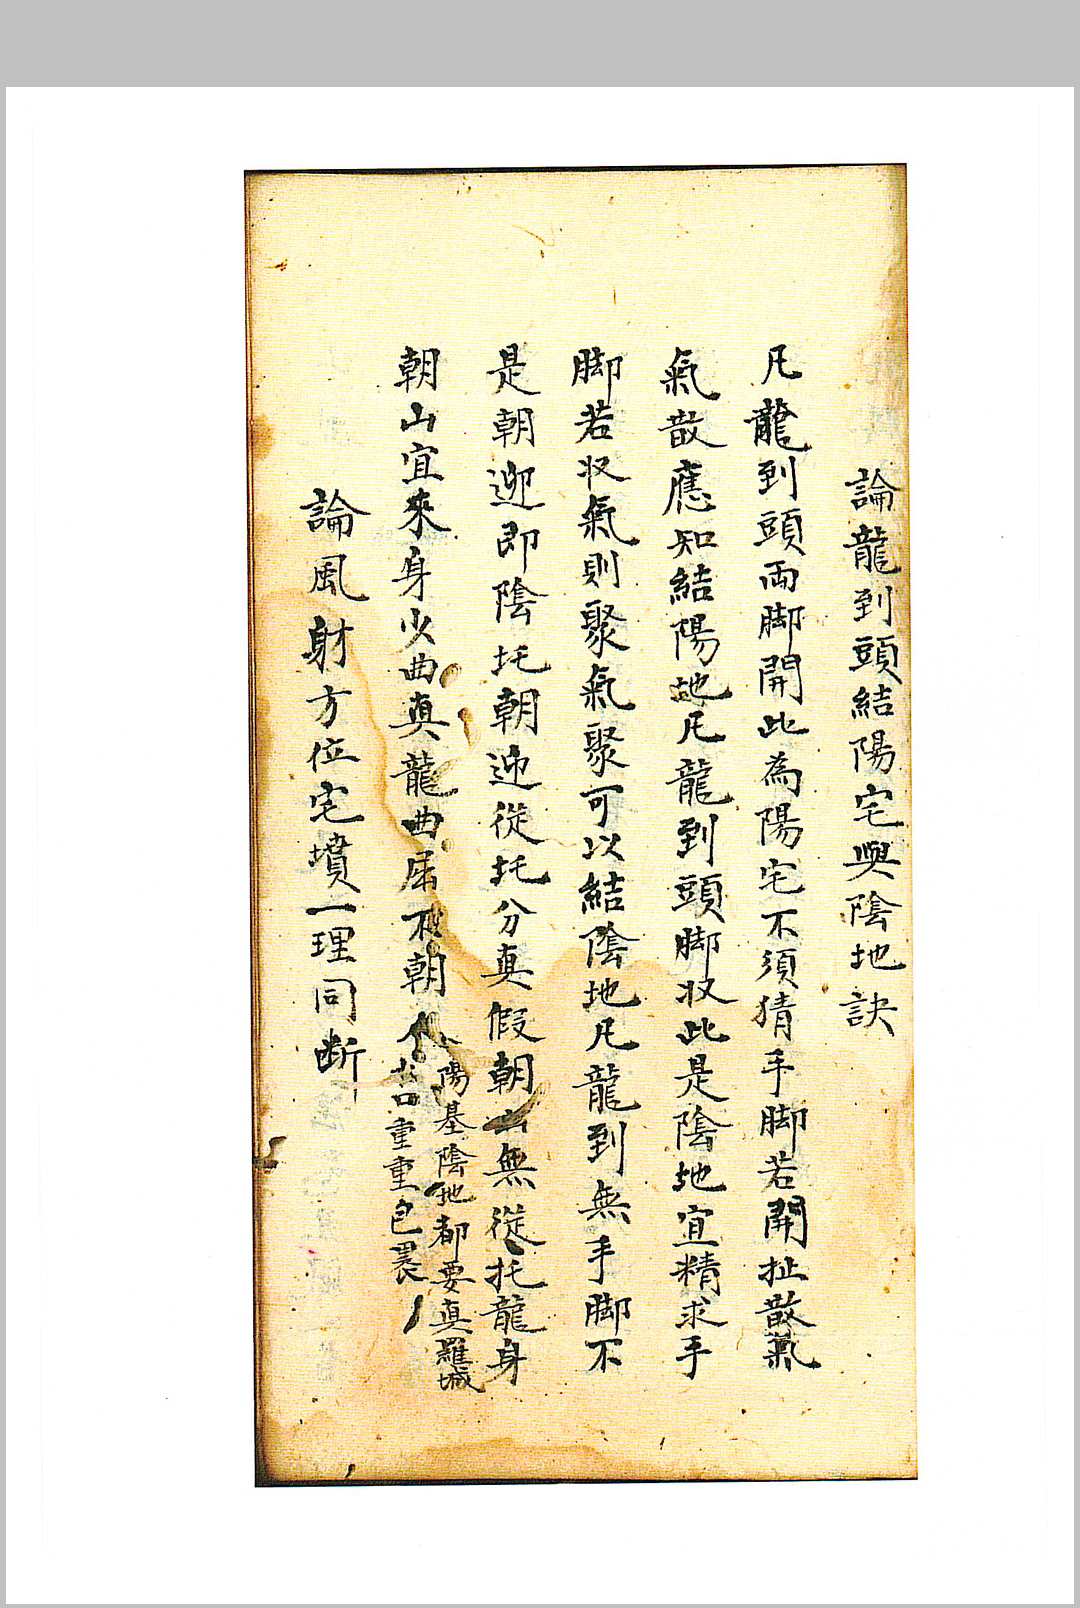 論龍到頭結陽宅與陰地訣
凡龍到頭両脚開此為陽宅不須猜手脚若開扯散氣
氣散應知結陽地凡龍到頭脚収此是陰地宜精求手
脚若収氣則聚氣聚可以結陰地凡龍到無手脚不
是朝迎即陰圫朝迎從圫分真假朝山無從托龍身
朝山宜來身少曲真龍曲屈不朝人
陽基陰地都要真羅城
若重重包裹
論風射方位宅墳一理同断